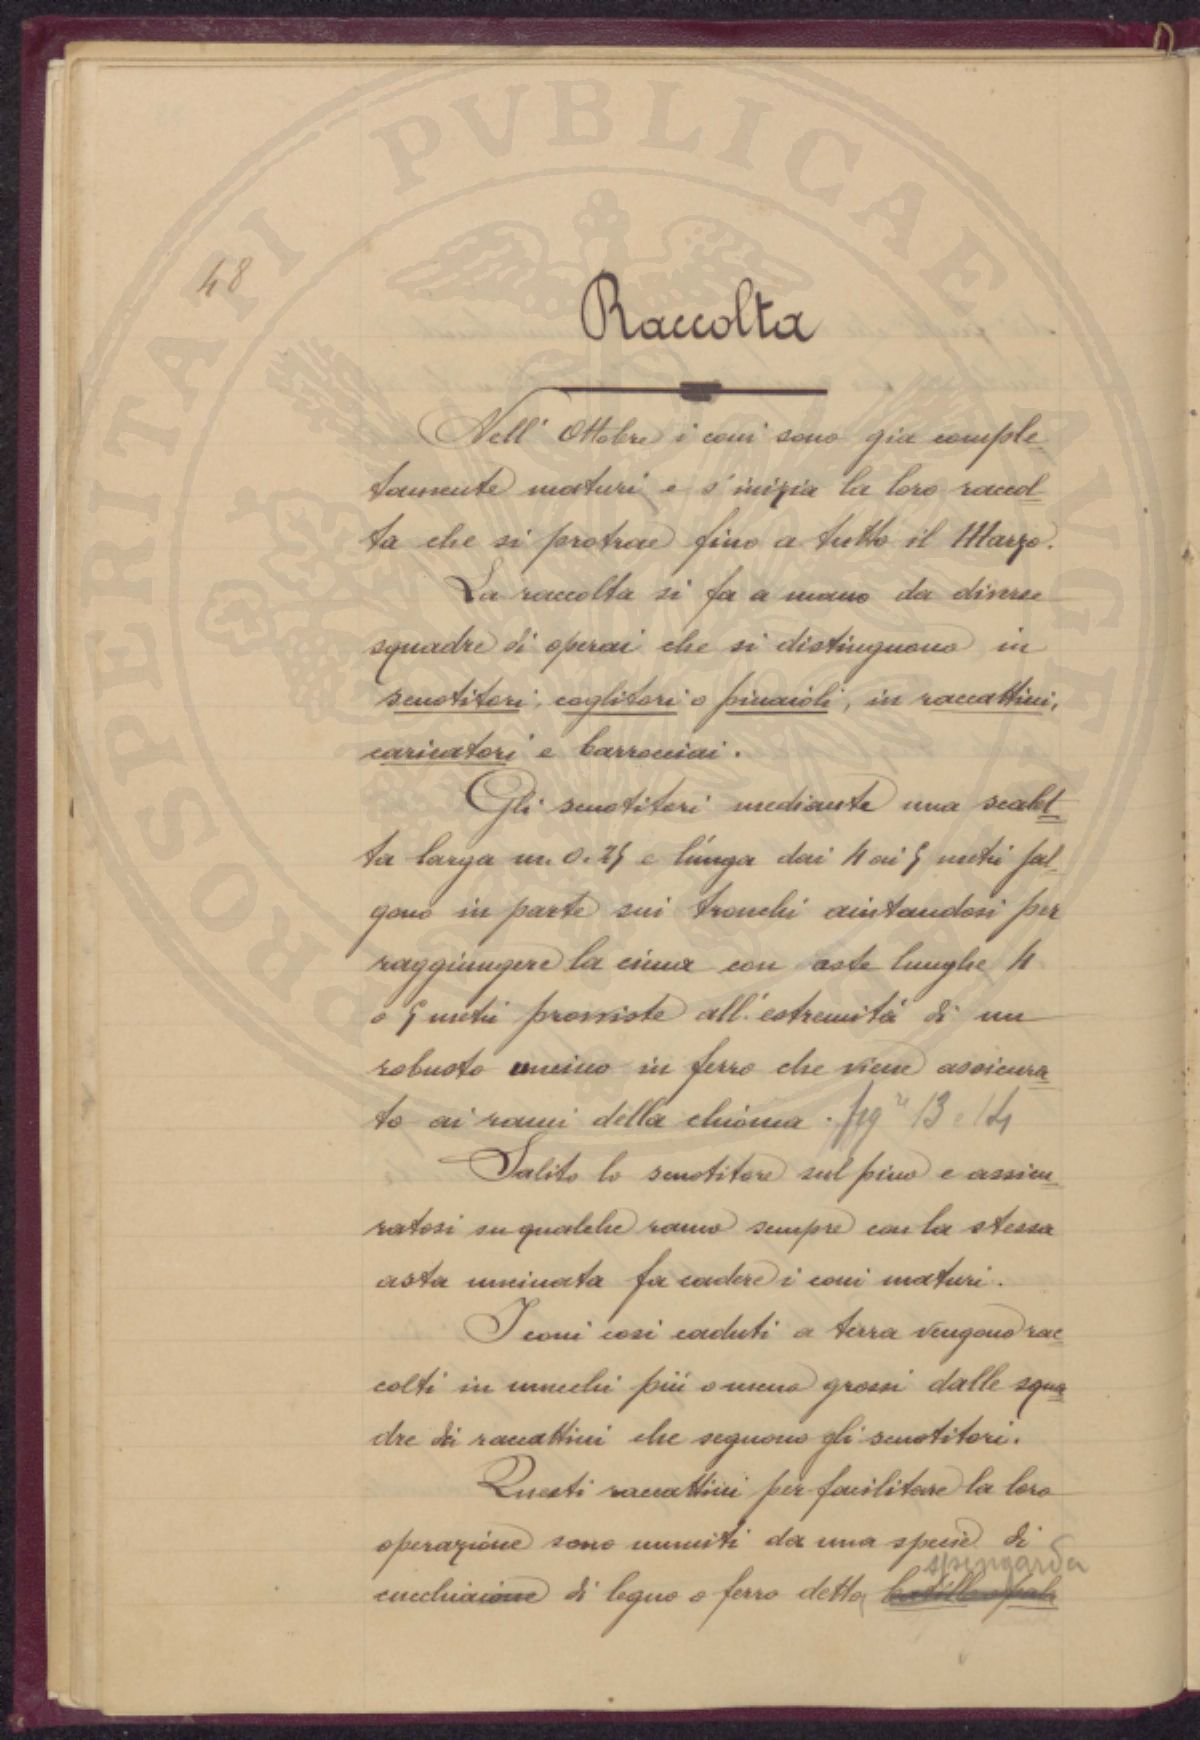 PROSPERITATI PVBLICAE AVGENDAE
48
Raccolta
Nell' Ottobre i coni sono già comple
tamente maturi e s'inizia la loro raccol
ta che si protrae fino a tutto il Marzo.
La raccolta si fa a mano da diverse
squadre di operai che si distinguono in
scuotitori, coglitori o pinaioli, in raccattini,
caricatori e barrocciai.
Gli scuotitori mediante una scalet
ta larga m. 0.25 e lunga dai 4 ai 5 metri sal
gono in parte sui tronchi aiutandosi per
raggiungere la cima con aste lunghe 4
o 5 metri provviste all'estremità di un
robusto uncino in ferro che viene assicura
to ai rami della chioma. fig re 13 e 14
Salito lo scuotitore sul pino e assicu
ratosi su qualche ramo sempre con la stessa
asta uncinata fa cadere i coni maturi.
I coni così caduti a terra vengono rac
colti in mucchi più o meno grossi dalle squa
dre di raccattini che seguono gli scuotitori.
Questi raccattini per facilitare la loro
operazione sono muniti da una specie di
spingarda
cucchiaione di legno o ferro detto